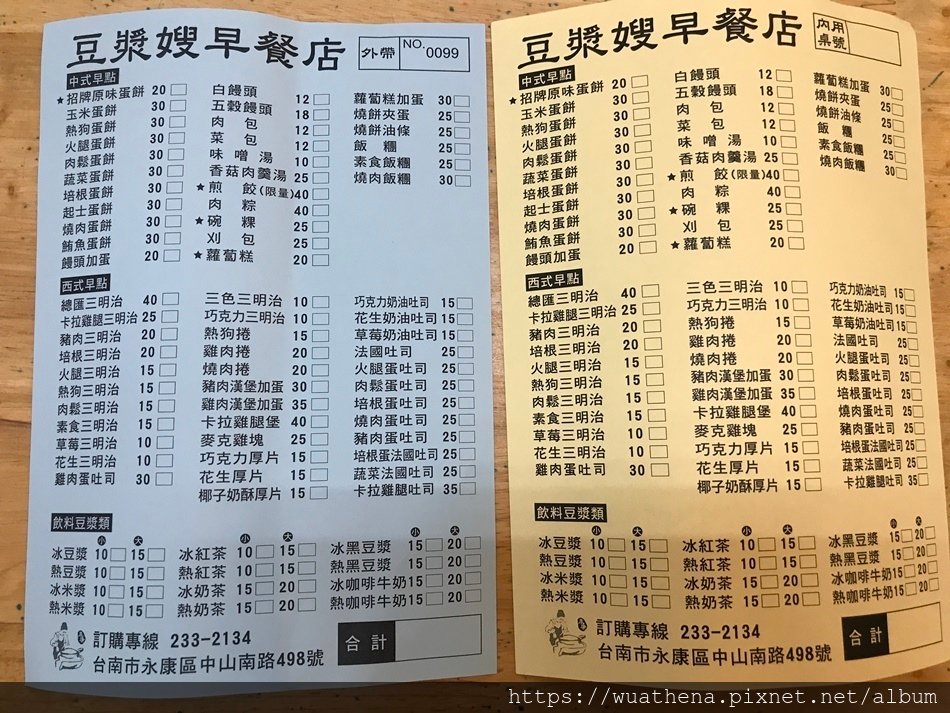 豆漿嫂早餐店
外帶 NO. 0099
中式早點
★招牌原味蛋餅 20
玉米蛋餅 30
熱狗蛋餅 30
火腿蛋餅 30
肉鬆蛋餅 30
蔬菜蛋餅 30
培根蛋餅 30
起士蛋餅 30
燒肉蛋餅 30
鮪魚蛋餅 30
饅頭加蛋 20
白饅頭 12
五穀饅頭 18
肉包 12
菜包 12
味噌湯 10
香菇肉羹湯 25
★煎餃(限量) 40
肉粽 40
★碗粿 25
刈包 25
★蘿蔔糕 20
蘿蔔糕加蛋 30
燒餅夾蛋 25
燒餅油條 25
飯糰 25
素食飯糰 25
燒肉飯糰 30
西式早點
總匯三明治 40
卡拉雞腿三明治 25
豬肉三明治 20
培根三明治 20
火腿三明治 15
熱狗三明治 15
肉鬆三明治 15
素食三明治 15
草莓三明治 10
花生三明治 10
雞肉蛋吐司 30
三色三明治 10
巧克力三明治 10
熱狗捲 15
雞肉捲 20
燒肉捲 20
豬肉漢堡加蛋 30
雞肉漢堡加蛋 35
卡拉雞腿堡 40
麥克雞塊 25
巧克力厚片 15
花生厚片 15
椰子奶酥厚片 15
巧克力奶油吐司 15
花生奶油吐司 15
草莓奶油吐司 15
法國吐司 25
火腿蛋吐司 25
肉鬆蛋吐司 25
培根蛋吐司 25
燒肉蛋吐司 25
豬肉蛋吐司 25
培根蛋法國吐司 25
蔬菜法國吐司 25
卡拉雞腿吐司 35
飲料豆漿類
小 大 小 大 小 大
冰豆漿 10 15 冰紅茶 10 15 冰黑豆漿 15 20
熱豆漿 10 15 熱紅茶 10 15 熱黑豆漿 15 20
冰米漿 10 15 冰奶茶 15 20 冰咖啡牛奶 15 20
熱米漿 10 15 熱奶茶 15 20 熱咖啡牛奶 15 20
訂購專線 233-2134
台南市永康區中山南路498號
合計
豆漿嫂早餐店
內用桌號
中式早點
★招牌原味蛋餅 20
玉米蛋餅 30
熱狗蛋餅 30
火腿蛋餅 30
肉鬆蛋餅 30
蔬菜蛋餅 30
培根蛋餅 30
起士蛋餅 30
燒肉蛋餅 30
鮪魚蛋餅 30
饅頭加蛋 20
白饅頭 12
五穀饅頭 18
肉包 12
菜包 12
味噌湯 10
香菇肉羹湯 25
★煎餃(限量) 40
肉粽 40
★碗粿 25
刈包 25
★蘿蔔糕 20
蘿蔔糕加蛋 30
燒餅夾蛋 25
燒餅油條 25
飯糰 25
素食飯糰 25
燒肉飯糰 30
西式早點
總匯三明治 40
卡拉雞腿三明治 25
豬肉三明治 20
培根三明治 20
火腿三明治 15
熱狗三明治 15
肉鬆三明治 15
素食三明治 15
草莓三明治 10
花生三明治 10
雞肉蛋吐司 30
三色三明治 10
巧克力三明治 10
熱狗捲 15
雞肉捲 20
燒肉捲 20
豬肉漢堡加蛋 30
雞肉漢堡加蛋 35
卡拉雞腿堡 40
麥克雞塊 25
巧克力厚片 15
花生厚片 15
椰子奶酥厚片 15
巧克力奶油吐司 15
花生奶油吐司 15
草莓奶油吐司 15
法國吐司 25
火腿蛋吐司 25
肉鬆蛋吐司 25
培根蛋吐司 25
燒肉蛋吐司 25
豬肉蛋吐司 25
培根蛋法國吐司 25
蔬菜法國吐司 25
卡拉雞腿吐司 35
飲料豆漿類
小 大 小 大 小 大
冰豆漿 10 15 冰紅茶 10 15 冰黑豆漿 15 20
熱豆漿 10 15 熱紅茶 10 15 熱黑豆漿 15 20
冰米漿 10 15 冰奶茶 15 20 冰咖啡牛奶 15 20
熱米漿 10 15 熱奶茶 15 20 熱咖啡牛奶 15 20
訂購專線 233-2134
台南市永康區中山南路498號
合計
https://wuathena.pixnet.net/album